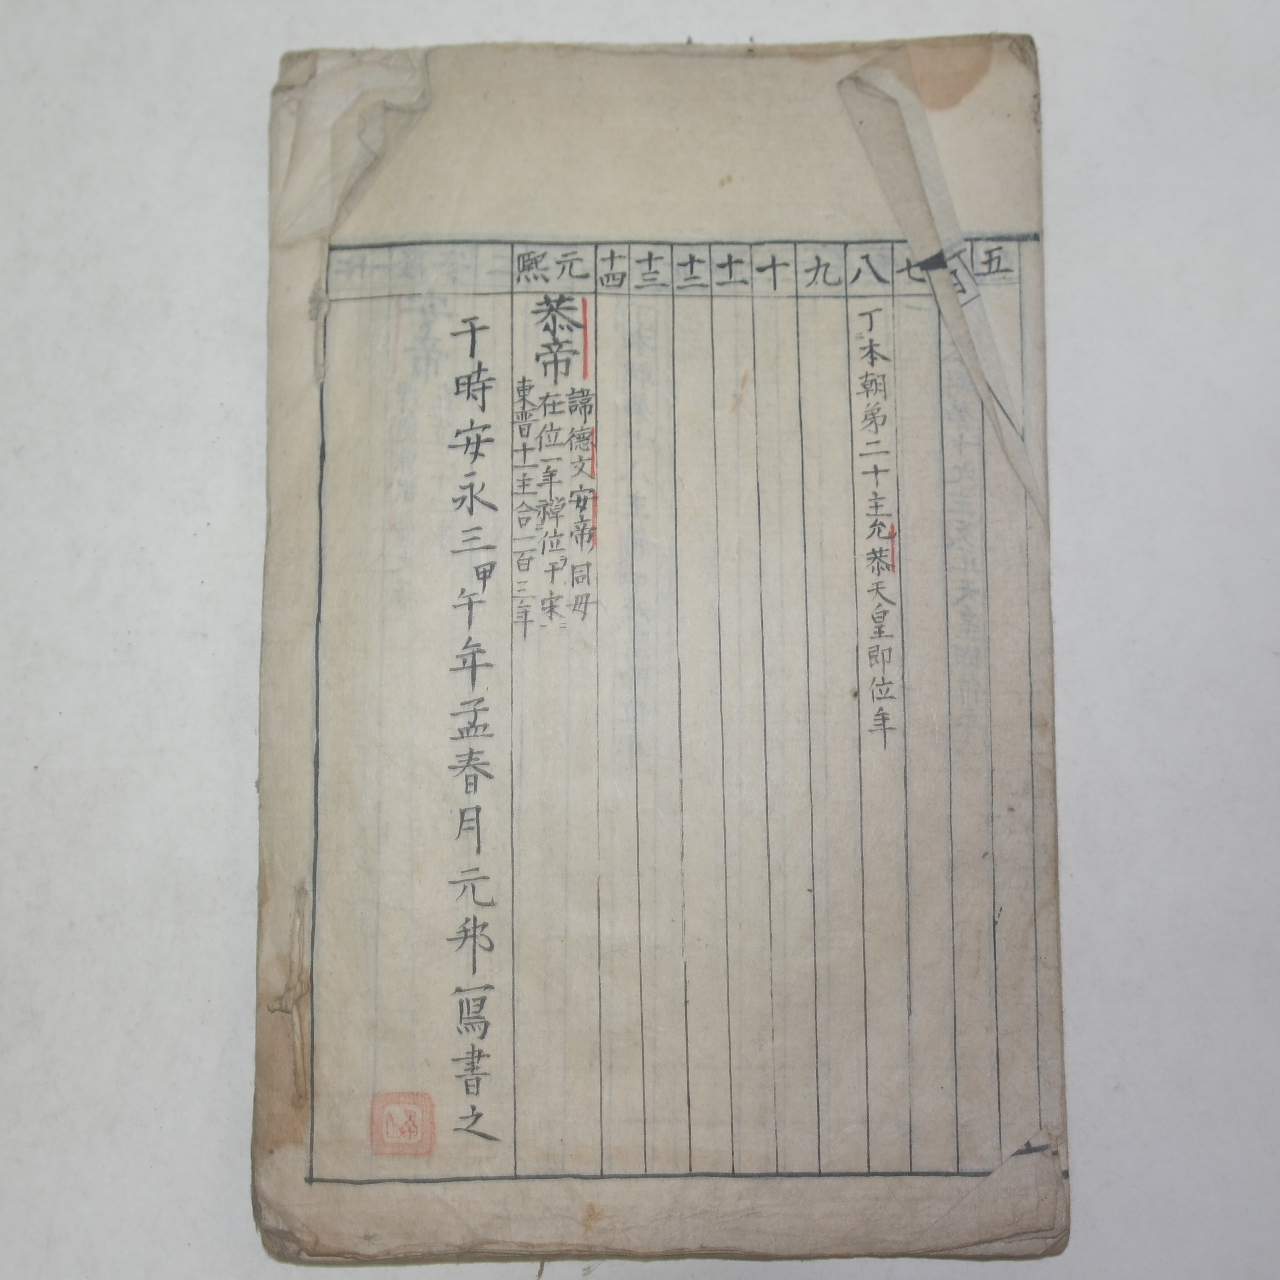 五
七
八
丁本朝第二十主允恭天皇即位年
九
十
十一
十二
十三
十四
元熙
恭帝
諱德文安帝同母
在位一年禅位于宋
東晋十一主合一百三年
于時安永三甲午年孟春月元邦寫書之